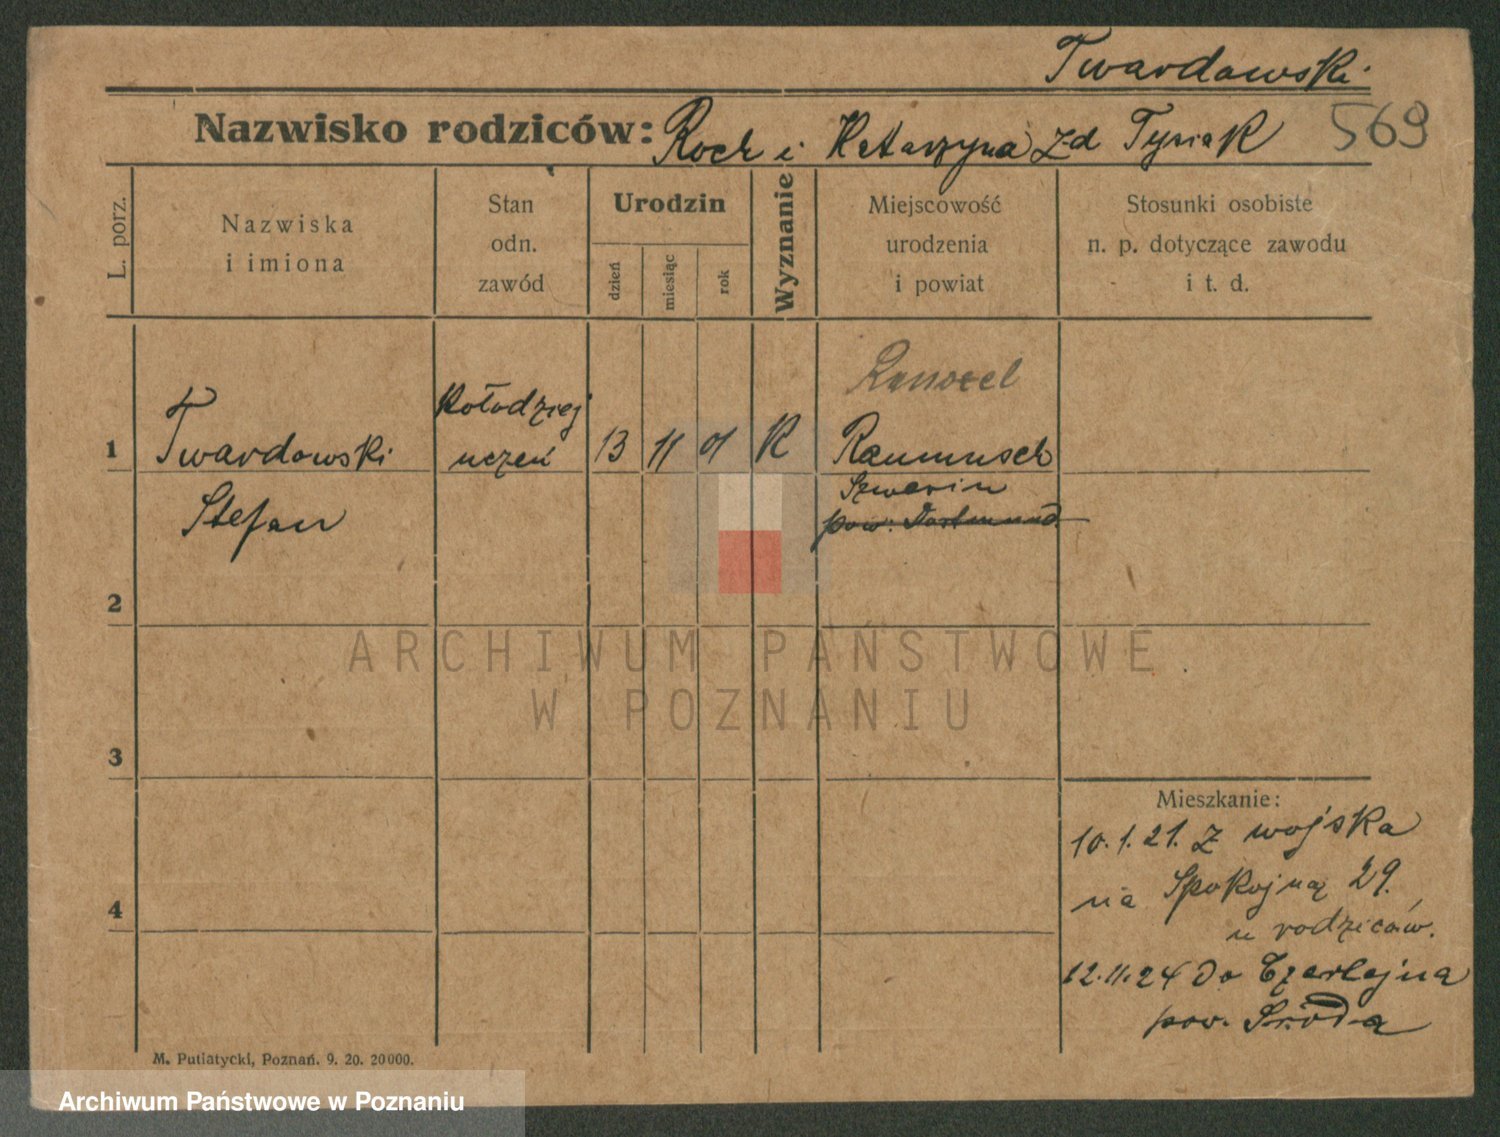 Twardowski
Nazwisko rodziców: Roch i Katarzyna z-d Tysiak 569
L. porz.
Nazwiska
i imiona
Stan
odn.
zawód
Urodzin
dzień
miesiąc
rok
Wyznanie
Miejscowość
urodzenia
i powiat
Stosunki osobiste
n. p. dotyczące zawodu
i t. d.
1
Twardowski
Stefan
Kołodziej
uczeń
13 11 01 K
Raumusch
Szwerin
pow. Dortmund
2
3
4
ARCHIWUM PAŃSTWOWE
W POZNANIU
Mieszkanie:
10.1.21. z wojska
na Spokojną 29.
u rodziców.
12.11.24 do Czerlejna
pow. Środa
M. Putiatycki, Poznań. 9. 20. 20000.
Archiwum Państwowe w Poznaniu